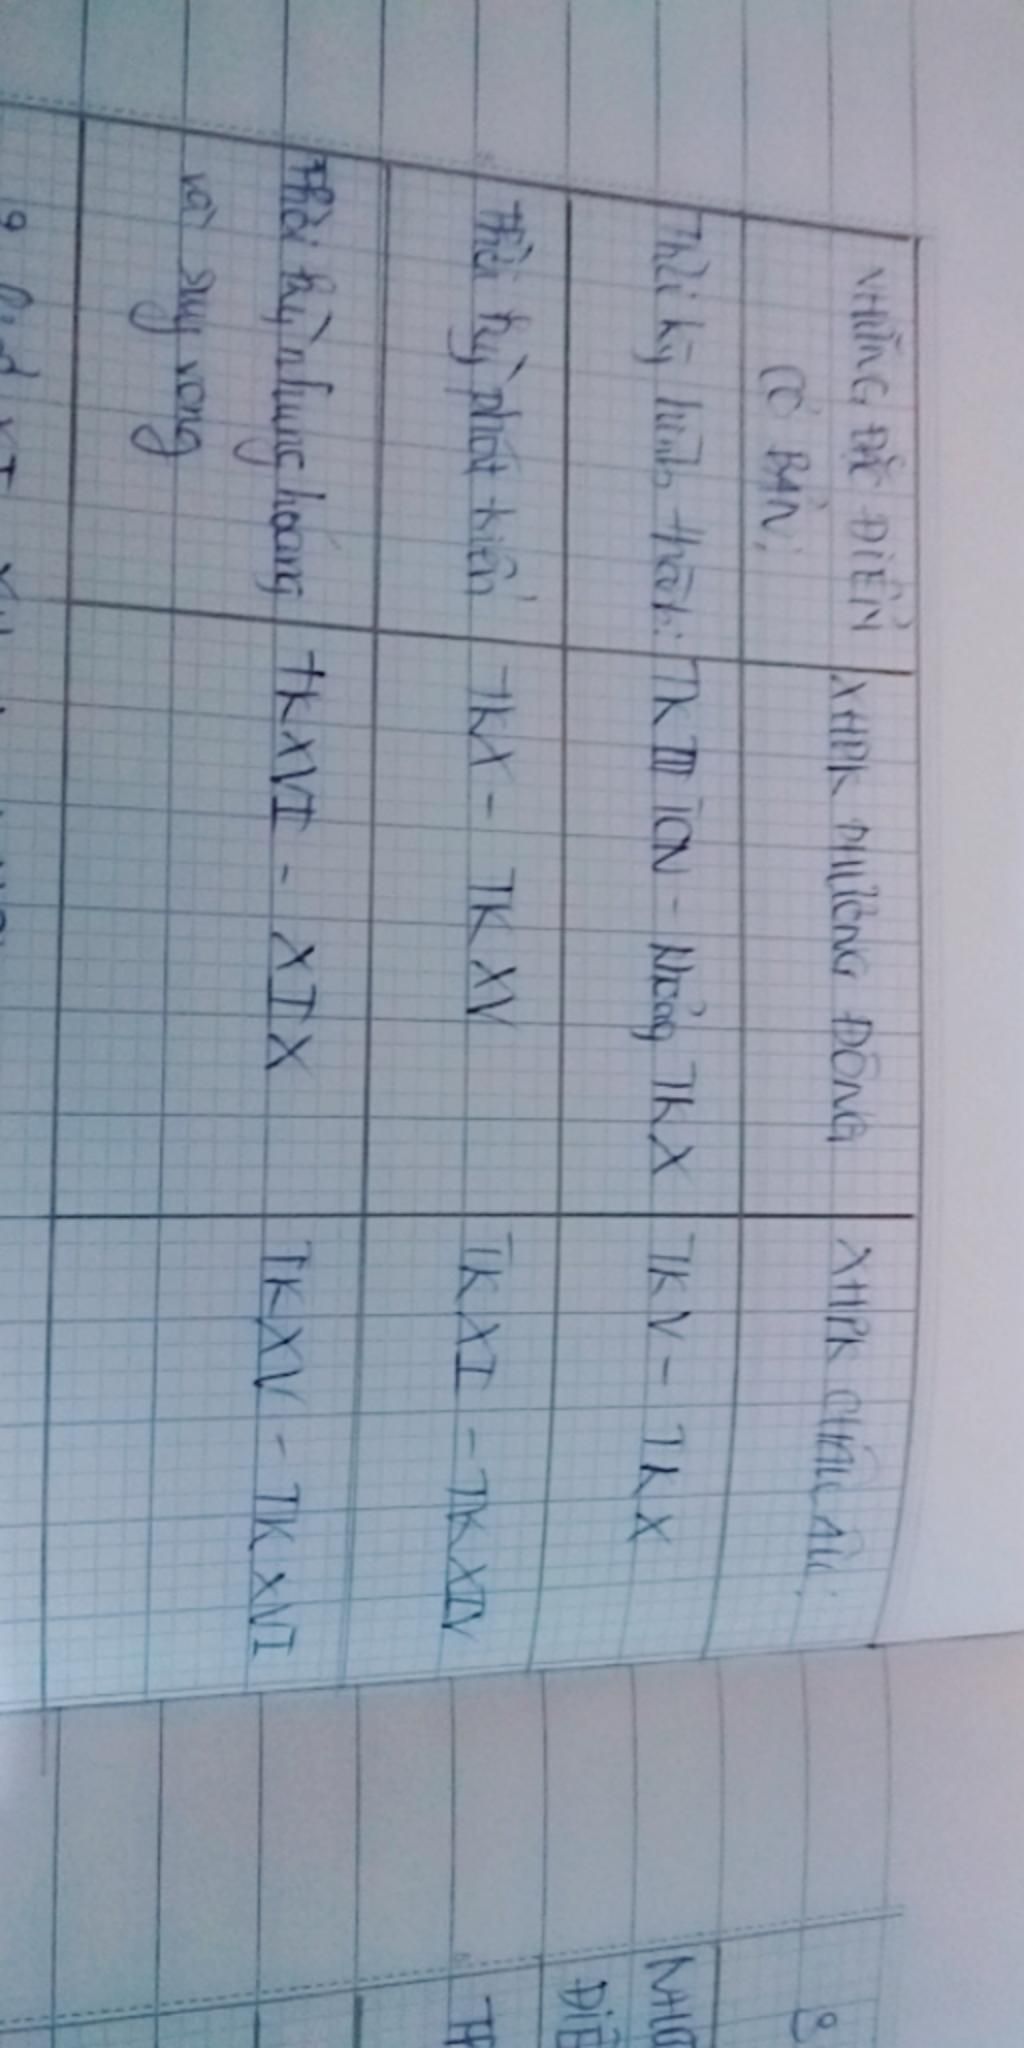 NHỮNG ĐẶC ĐIỂM
CƠ BẢN:
XHPK PHƯƠNG ĐÔNG
XHPK CHÂU ÂU:
Thời kỳ hình thành:
TK III TCN - Khoảng TK X
TK V - TK X
Thời kỳ phát triển
TK X - TK XV
TK XI - TK XIV
Thời kỳ khủng hoảng
và suy vong
TK XVI - XIX
TK XV - TK XVI
8
ĐIỂ